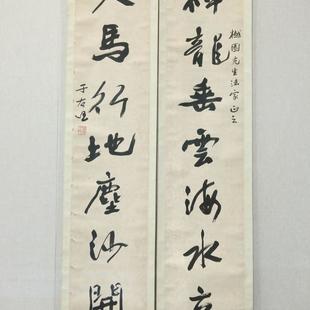 樾園先生法家正之
神龍垂雲海水
天馬行地塵沙開
于右任